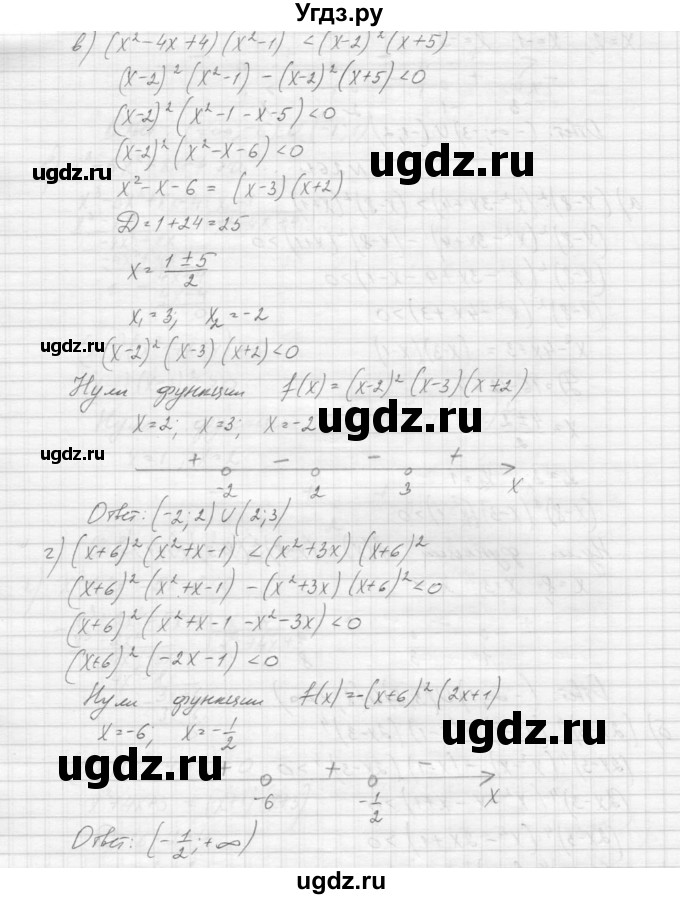 Угдз.ру
в) (x²-4x+4)(x²-1) <(x-2)²(x+5)
(x-2)²(x²-1)-(x-2)²(x+5)<0
(x-2)²(x²-1-x-5)<0
(x-2)²(x²-x-6)<0
ugdz.ru
ugdz.ru
x²-x-6 = (x-3)(x+2)
Д=1+24=25
x= 1±5/2
ugdz.ru
x₁=3; x₂=-2
(x-2)²(x-3)(x+2)<0
ugdz.ru
Нули функции f(x)=(x-2)²(x-3)(x+2)
x=2; x=3; x=-2
ugdz.ru
ugdz.ru
+ - - +
-2 2 3 x
Ответ: (-2;2)∪(2;3)
г) (x+6)²(x²+x-1) <(x²+3x)(x+6)²
(x+6)²(x²+x-1)-(x²+3x)(x+6)²<0
(x+6)²(x²+x-1-x²-3x)<0
ugdz.ru
(x+6)²(-2x-1)<0
Нули функции f(x)=-(x+6)²(2x+1)
x=-6; x=-1/2
ugdz.ru
ugdz.ru
+ + -
-6 -1/2 x
Ответ: (-1/2;+∞)
ugdz.ru
ugdz.ru